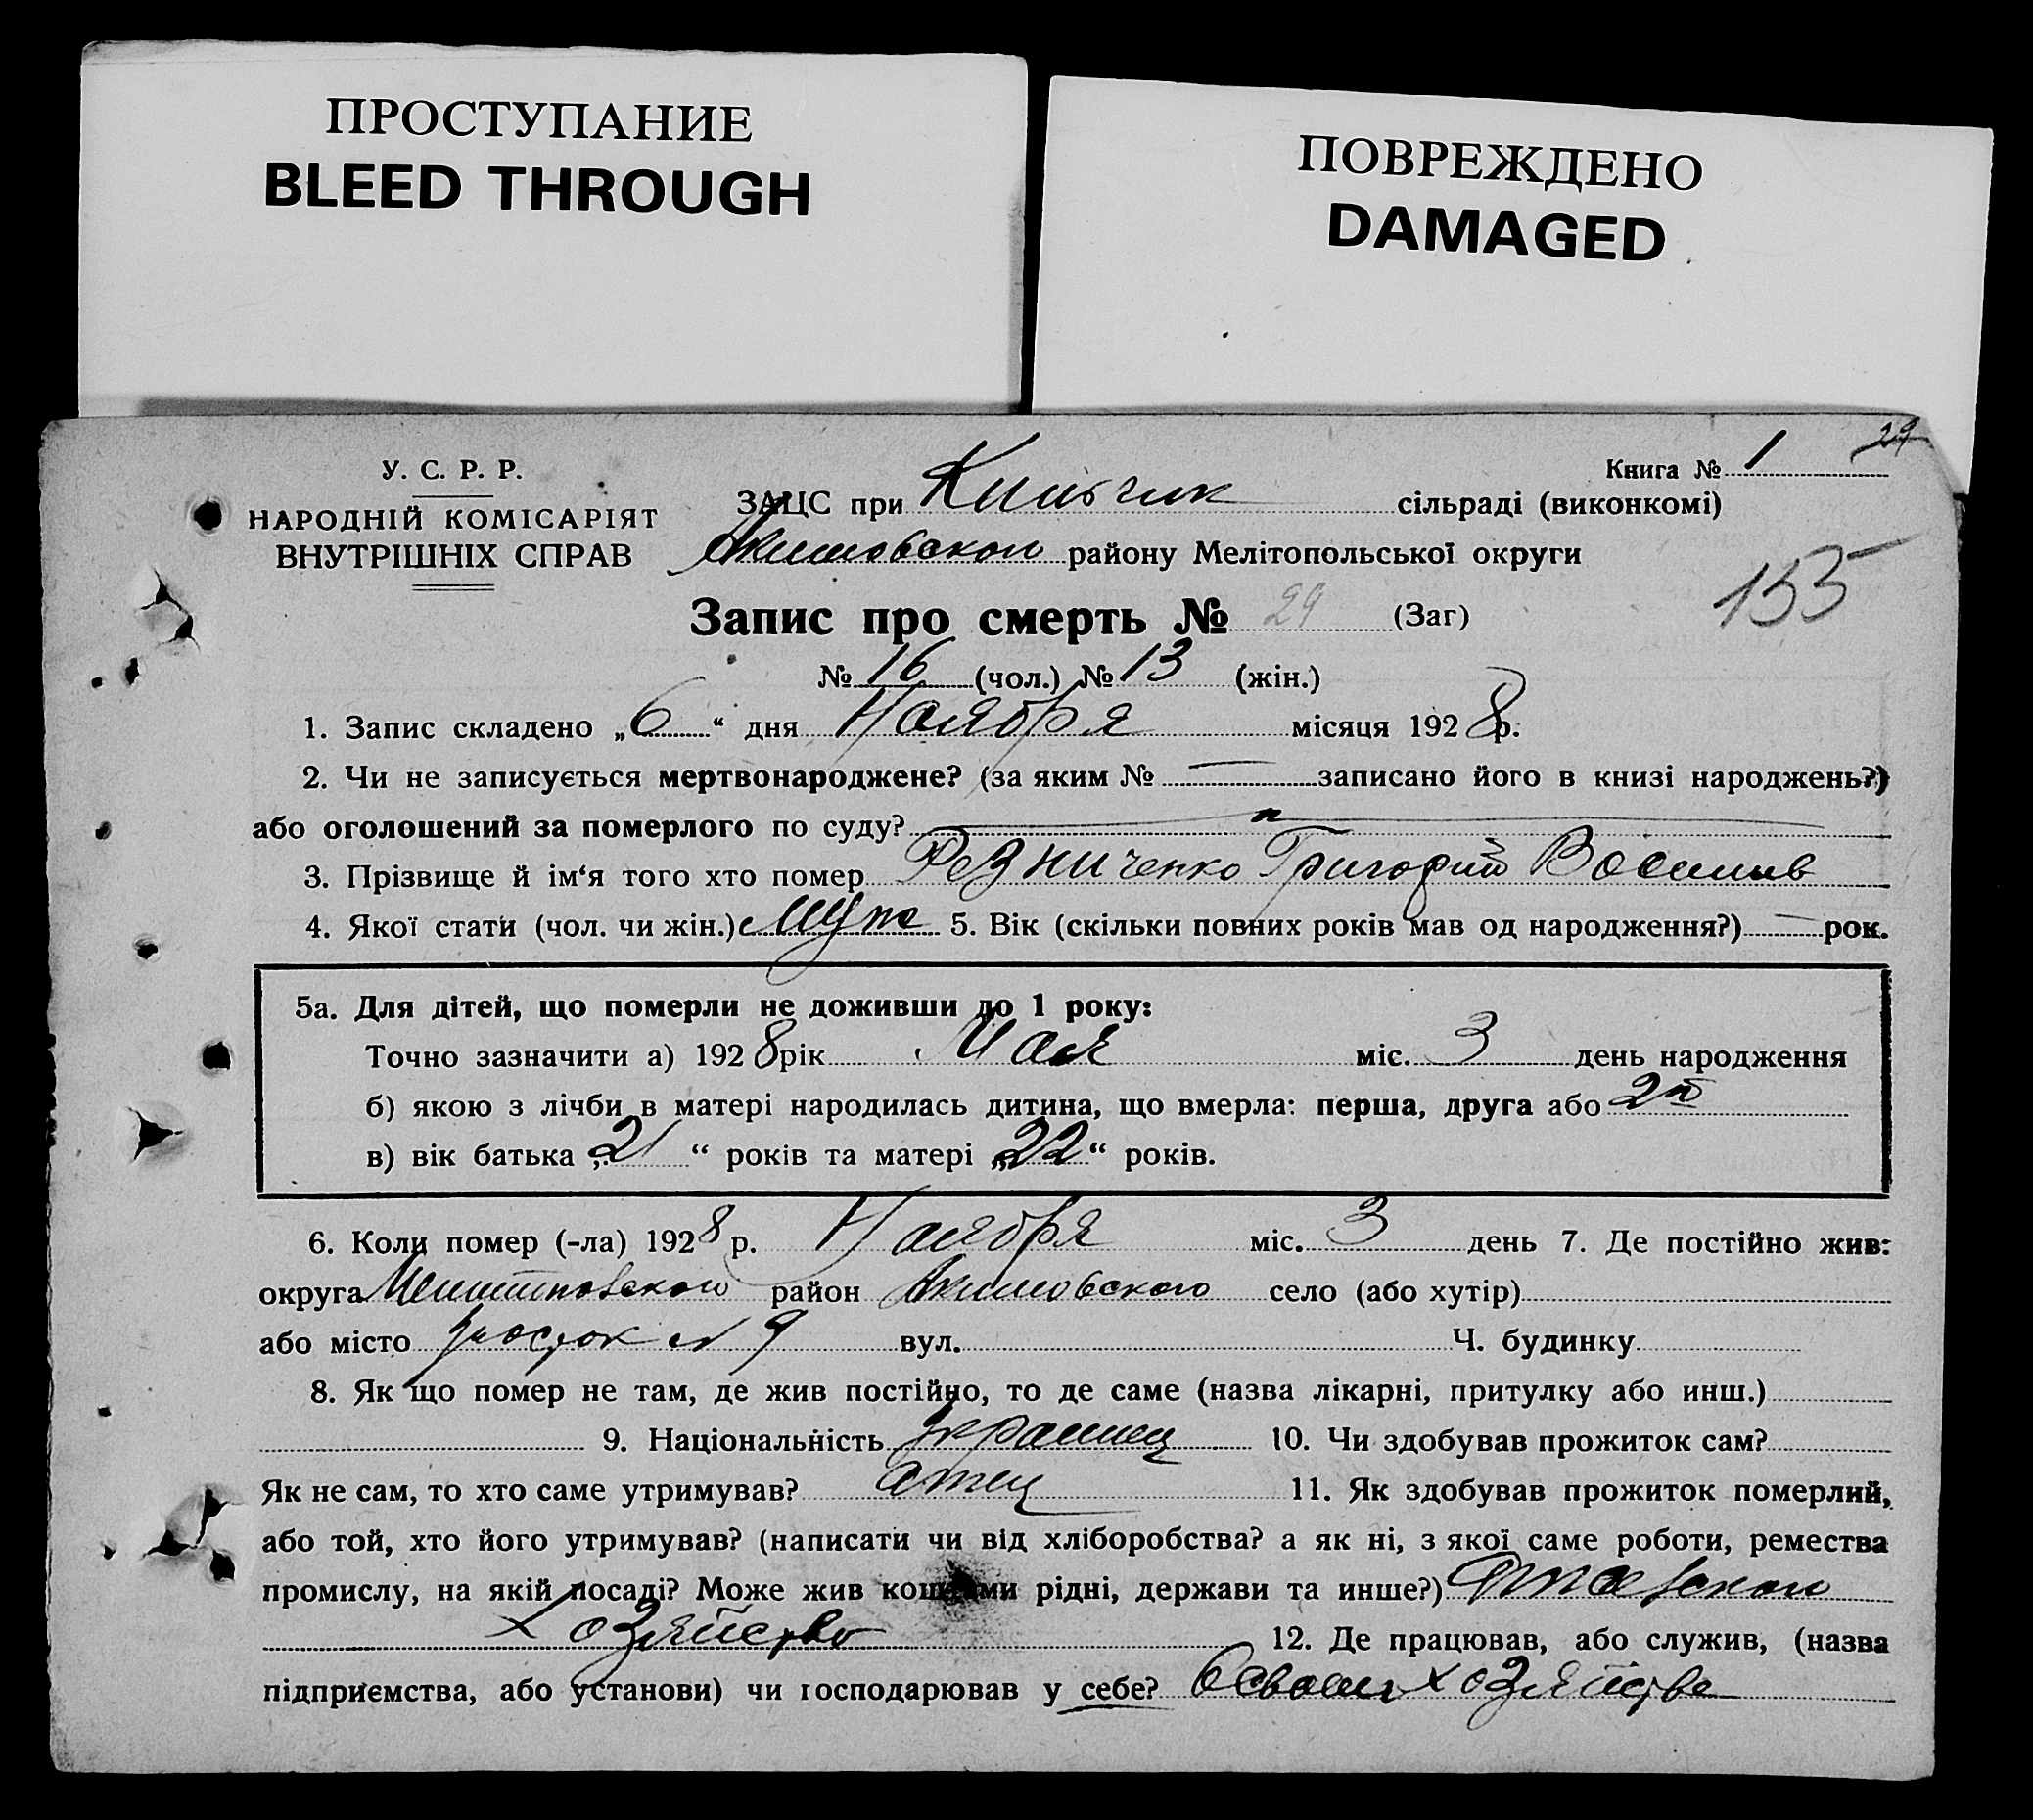 ПРОСТУПАНИЕ
BLEED THROUGH
ПОВРЕЖДЕНО
DAMAGED
29
У. С. Р. Р.
НАРОДНІЙ КОМІСАРІЯТ
ВНУТРІШНІХ СПРАВ
Книга № 1
ЗАЦС при сільраді (виконкомі)
Акимовском району Мелітопольської округи
155
Запис про смерть № 29 (Заг)
№ 16 (чол.) № 13 (жін.)
1. Запис складено „6“ дня Ноября місяця 1928 р.
2. Чи не записується мертвонароджене? (за яким № — записано його в книзі народжень?)
або оголошений за померлого по суду?
3. Прізвище й ім‘я того хто помер Резниченко Григорий Василив
4. Якої стати (чол. чи жін.) Муж 5. Вік (скільки повних років мав од народження?) — рок.
5а. Для дітей, що померли не доживши до 1 року:
Точно зазначити а) 1928 рік Мая міс. 3 день народження
б) якою з лічби в матері народилась дитина, що вмерла: перша, друга або 2й
в) вік батька „21“ років та матері „22“ років.
6. Коли помер (-ла) 1928 р. Ноября міс. 3 день 7. Де постійно жив:
округа район Акимовского село (або хутір)
або місто участок № 9 вул. Ч. будинку
8. Як що помер не там, де жив постійно, то де саме (назва лікарні, притулку або инш.)
9. Національність украинец 10. Чи здобував прожиток сам?
Як не сам, то хто саме утримував? отец 11. Як здобував прожиток померлий,
або той, хто його утримував? (написати чи від хліборобства? а як ні, з якої саме роботи, ремества
промислу, на якій посаді? Може жив коштами рідні, держави та инше?)
хозяйство 12. Де працював, або служив, (назва
підприємства, або установи) чи господарював у себе? в своем хозяйстве